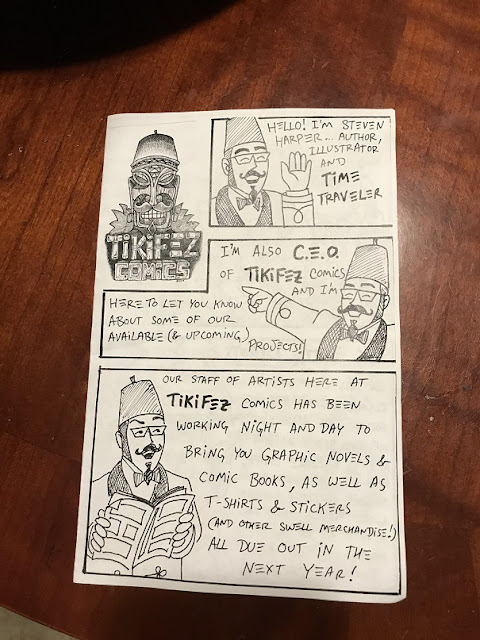 TIKIFEZ
COMICS
HELLO! I'M STEVEN
HARPER... AUTHOR,
ILLUSTRATOR
AND
TIME
TRAVELER
I'M ALSO C.E.O.
OF TIKIFEZ COMICS
AND I'M
HERE TO LET YOU KNOW
ABOUT SOME OF OUR
AVAILABLE (& UPCOMING)
PROJECTS!
OUR STAFF OF ARTISTS HERE AT
TIKIFEZ COMICS HAS BEEN
WORKING NIGHT AND DAY TO
BRING YOU GRAPHIC NOVELS &
COMIC BOOKS, AS WELL AS
T-SHIRTS & STICKERS
(AND OTHER SWELL MERCHANDISE!)
ALL DUE OUT IN THE
NEXT YEAR!